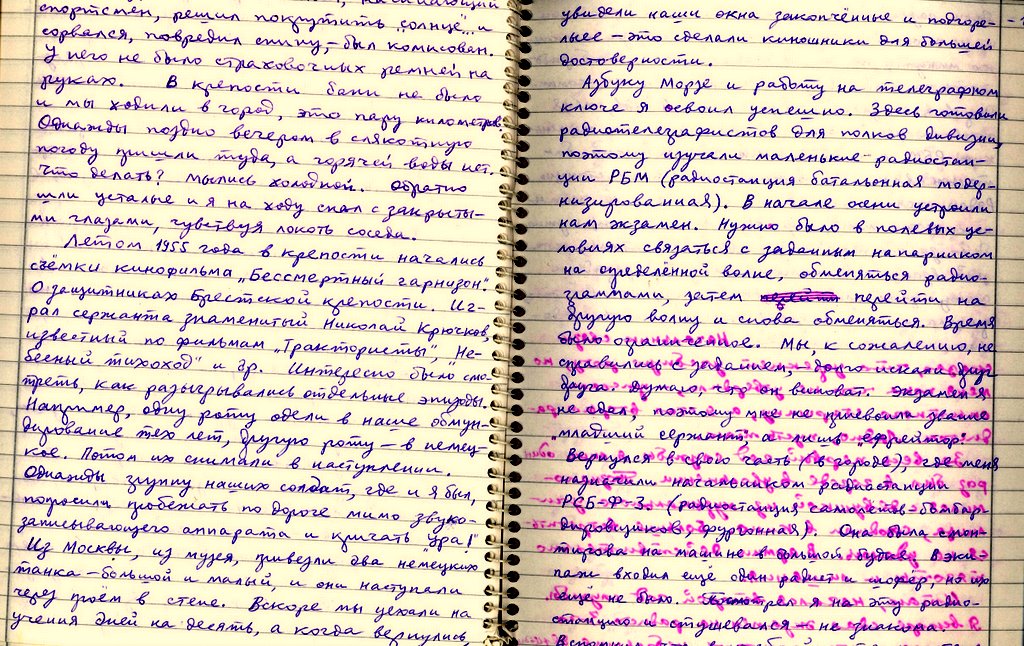 спортсмен, решил покрутить „солнце" и
сорвался, повредил спину, – был комисован.
У него не было страховочных ремней на
руках. В крепости бани не было
и мы ходили в город, это пару километров.
Однажды поздно вечером в слякотную
погоду пришли туда, а горячей воды нет.
Что делать? Мылись холодной. Обратно
шли усталые и я на ходу спал с закрыты-
ми глазами, чувствуя локоть соседа.
Летом 1955 года в крепости начались
съёмки кинофильма „Бессмертный гарнизон".
О защитниках Брестской крепости. Иг-
рал сержанта знаменитый Николай Крючков,
известный по фильмам „Трактористы", „Не-
бесный тихоход" и др. Интересно было смо-
треть, как разыгрывались отдельные эпизоды.
Например, одну роту одели в наше обмун-
дирование тех лет, другую роту – в немец-
кое. Потом их снимали в наступлении.
Однажды группу наших солдат, где и я был,
попросили пробежать по дороге мимо звуко-
записывающего аппарата и кричать „Ура!"
Из Москвы, из музея, привезли два немецких
танка – большой и малый, и они наступали
через проём в стене. Вскоре мы уехали на
учения дней на десять, а когда вернулись,
увидели наши окна закопчённые и подгоре-
лые – это сделали киношники для большей
достоверности.
Азбуку Морзе и работу на телеграфном
ключе я освоил успешно. Здесь готовили
радиотелеграфистов для полков дивизии,
поэтому изучали маленькие радиостан-
ции РБМ (радиостанция батальонная модер-
низированная). В начале осени устроили
нам экзамен. Нужно было в полевых ус-
ловиях связаться с заданным напарником
на определённой волне, обменяться радио-
граммами, затем перейти на
другую волну и снова обменяться. Время
было ограниченное. Мы, к сожалению, не
справились с заданием – долго искали друг
друга. Думаю, что он виноват. Экзамен я
не сдал, поэтому мне не присвоили звание
„младший сержант", а лишь „ефрейтор".
Вернулся в свою часть (в городе), где меня
назначили начальником радиостанции
РСБ-Ф-3. (радиостанция самолётов-бомбар-
дировщиков, фургонная). Она была смон-
тирова на машине в большой будке. В эки-
паж входил ещё один радист и шофёр, но их
ещё не было. Посмотрел я на эту радио-
станцию и стушевался – не знакома.